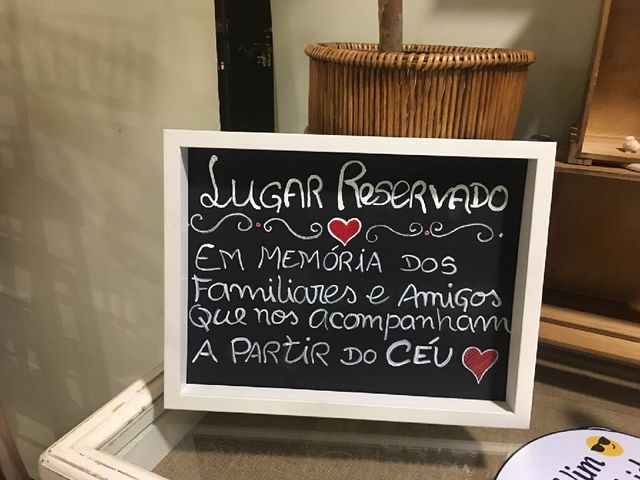 LUGAR RESERVADO
EM MEMÓRIA DOS
Familiares e Amigos
Que nos acompanham
A PARTIR DO CÉU